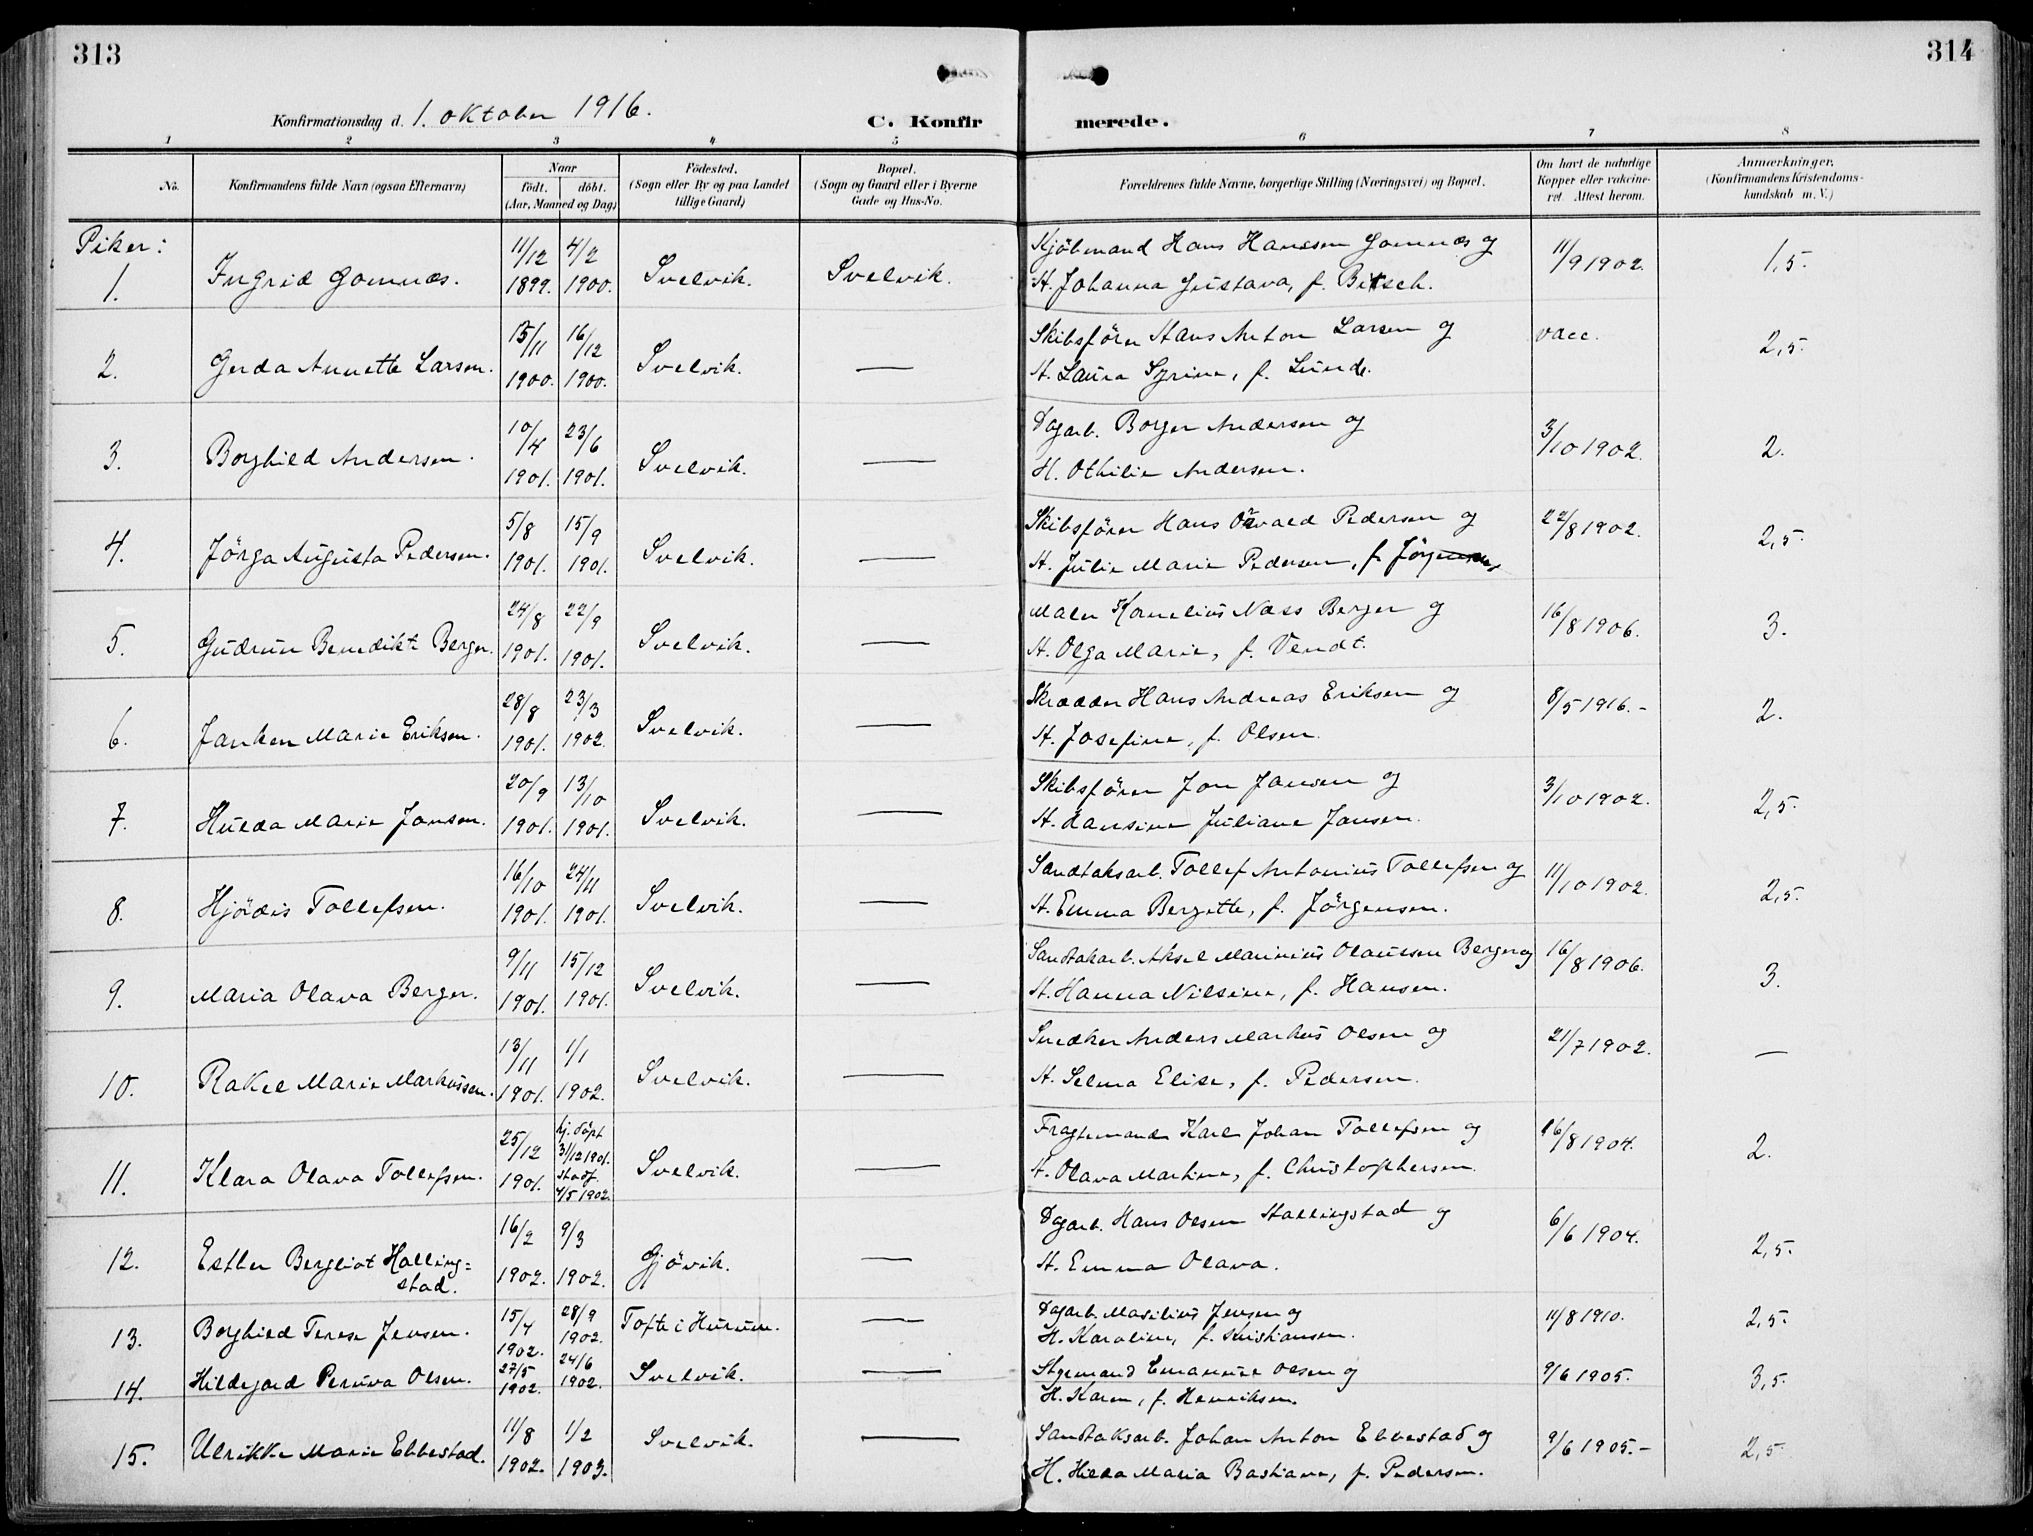 313
314
Konfirmationsdag d. 1. oktober 1916.
C. Konfirmerede.
1 2 3 4 5 6 7 8
No.
Konfirmandens fulde Navn (ogsaa Efternavn)
Naar
født. døbt.
(Aar, Maaned og Dag)
Fødested.
(Sogn eller By og paa Landet
tillige Gaard)
Bopæl.
(Sogn og Gaard eller i Byerne
Gade og Hus-No.
Forældrenes fulde Navne, borgerlige Stilling (Næringsvei) og Bopæl.
Om havt de naturlige
Kopper eller vakcine-
ret. Attest herom.
Anmærkninger.
(Konfirmandens Kristendoms-
kundskab m. V.)
Piker:
11/12 4/2 Kjöbmand Hans Hanssen Gomnæs og
1. Ingrid Gomnæs. 1899. 1900. Svelvik. Svelvik. H. Johanna Gustava, f. Bitsch. 11/9 1902. 1,5.
15/11 16/12 Skibsförer Hans Anton Larsen og vacc.
2. Gerda Annette Larsen. 1900. 1900. Svelvik. — H. Laura Syrine, f. Lunde. 2,5.
10/4 23/6 Dagarb. Borger Andersen og
3. Borghild Andersen. 1901. 1901. Svelvik. — H. Othilie Andersen. 3/10 1902. 2.
5/8 15/9 Skibsförer Hans Osvald Pedersen og 22/8 1902.
4. Jörga Augusta Pedersen. 1901. 1901. Svelvik. — H. Julie Marie Pedersen, f. Jörgensen 2,5.
24/8 22/9 Maler Kornelius Næss Berger og
5. Gudrun Benedikte Berger. 1901. 1901. Svelvik. — H. Olga Marie, f. Vendt. 16/8 1906. 3.
28/8 23/3 Skrædder Hans Andreas Eriksen og
6. Janken Marie Eriksen. 1901. 1902. Svelvik. — H. Josefine, f. Olsen. 8/5 1916.- 2.
20/9 13/10 Skibsförer Jon Jansen og
7. Hulda Marie Jonsen. 1901. 1901. Svelvik. — H. Lansine Juliane Jansen. 3/10 1902. 2,5.
16/10 24/11 Sandtaksarb. Tollef Antonius Tollefsen og
8. Hjördis Tollefsen. 1901. 1901. Svelvik. — H. Emma Bergette, f. Jörgensen. 11/10 1902. 2,5.
9/11 15/12 Sandtakarb. Aksel Marinius Olaussen Berger og
9. Maria Olava Berger. 1901. 1901. Svelvik. — H. Hanna Nilsine, f. Hansen. 16/8 1906. 3.
13/11 1/1 Snedker Anders Markus Olsen og
10. Rakel Marie Markussen. 1901. 1902. Svelvik. — H. Selma Elise, f. Pedersen. 21/7 1902. —
25/12 hj. döpt 3/12 1901. Fragtemand Karl Johan Tollefsen og
11. Klara Olava Tollefsen. 1901. stadf. 4/5 1902. Svelvik. — H. Olava Martine, f. Christophersen. 16/8 1904. 2.
16/2 9/3 Dagarb. Hans Olsen Hallingstad og
12. Esther Bergliot Halling= 1902. 1902. Gjövik. — H. Emma Olava. 6/6 1904. 2,5.
stad.
15/4 28/9 Dagarb. Masilius Jensen og
13. Borghild Terese Jensen. 1902. 1902. Tofte i Hurum. — H. Karoline, f. Kristiansen. 11/8 1910. 2,5.
27/5 24/6 Styrmand Emanuel Olsen og
14. Hildegard Peruva Olsen. 1902. 1902. Svelvik. — H. Karen, f. Henriksen. 9/6 1905. 3,5.
11/8 1/2 Sandtaksarb. Johan Anton Ebbestad og
15. Ulrikke Marie Ebbestad. 1902. 1903. Svelvik. — H. Hilda Maria Bastiane, f. Pedersen. 9/6 1905.- 2,5.